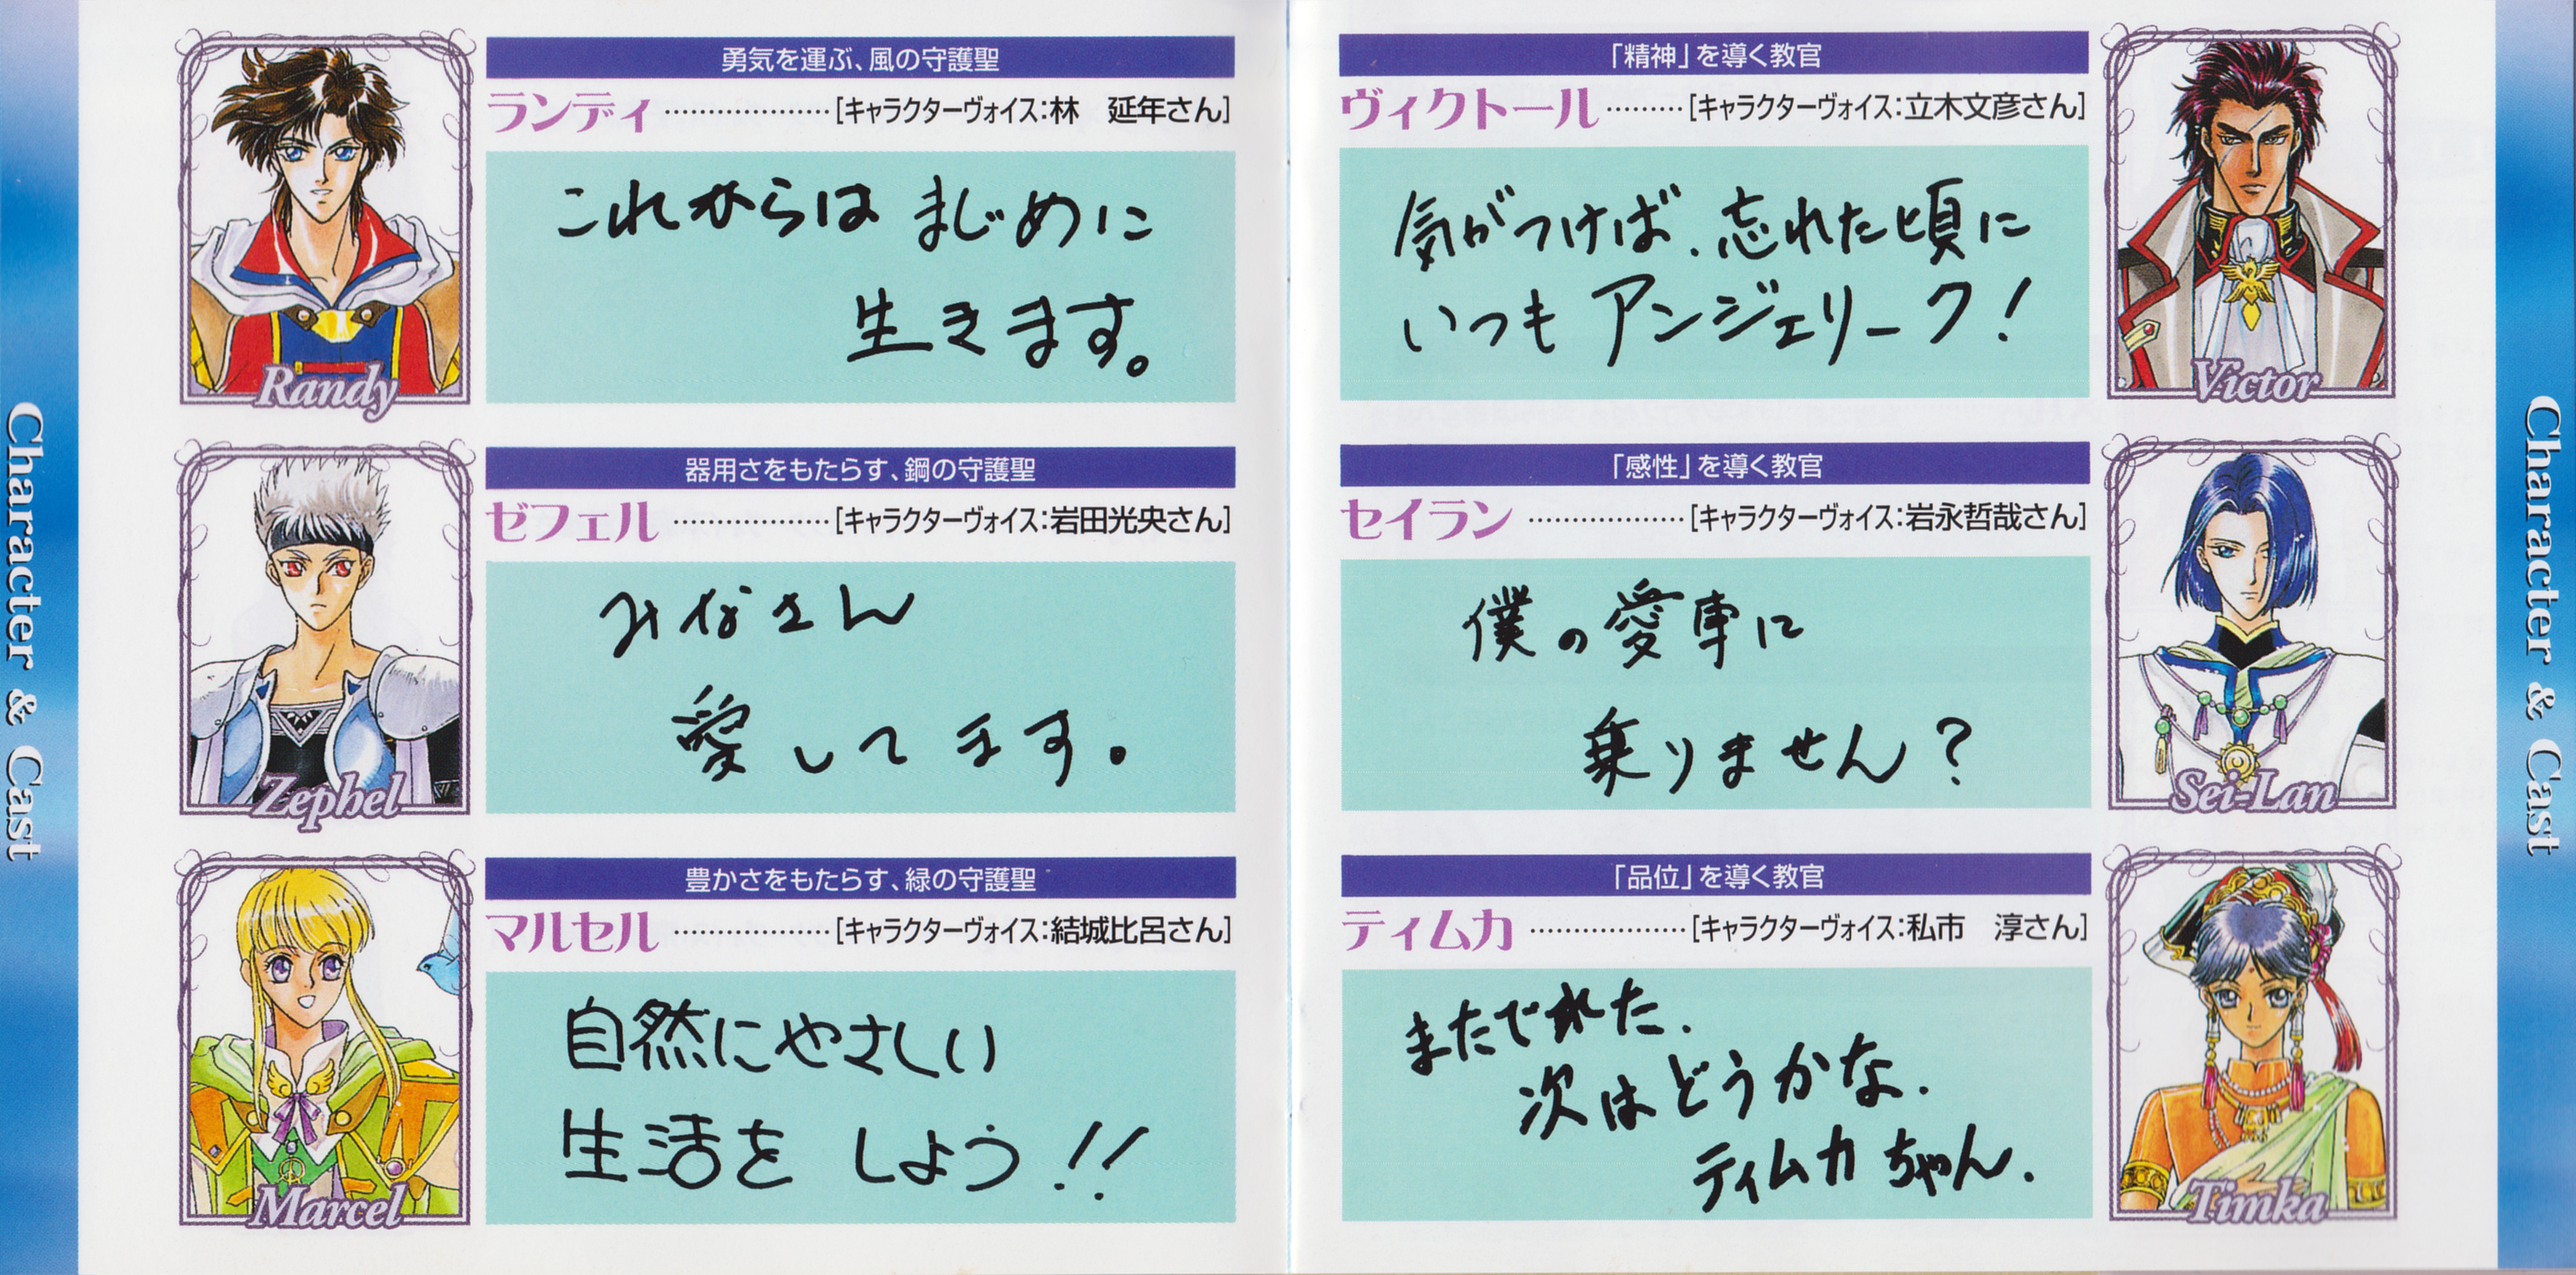 Character & Cast
勇気を運ぶ、風の守護聖
ランディ ………………[キャラクターヴォイス:林　延年さん]
これからは まじめに
生きます。
Randy
器用さをもたらす、鋼の守護聖
ゼフェル ………………[キャラクターヴォイス:岩田光央さん]
みなさん
愛してます。
Zephel
豊かさをもたらす、緑の守護聖
マルセル ………………[キャラクターヴォイス:結城比呂さん]
自然にやさしい
生活を しよう!!
Marcel
「精神」を導く教官
ヴィクトール ………[キャラクターヴォイス:立木文彦さん]
気がつけば、忘れた頃に
いつも アンジェリーク!
Victor
「感性」を導く教官
セイラン ………………[キャラクターヴォイス:岩永哲哉さん]
僕の愛車に
乗りません?
Sei-Lan
「品位」を導く教官
ティムカ ………………[キャラクターヴォイス:私市　淳さん]
またでれた.
次はどうかな.
ティムカ ちゃん.
Timka
Character & Cast